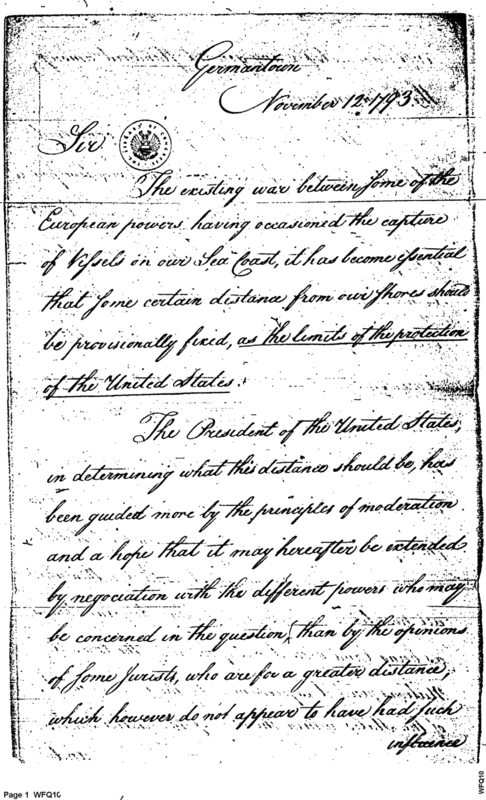 Germantown
November 12. 1793
Sir
The existing war between some of the
European powers having occasioned the capture
of Vessels on our Sea Coast, it has become essential
that some certain distance from our shores should
be provisionally fixed, as the limits of the protection
of the United States.
The President of the United States,
in determining what this distance should be, has
been guided more by the principles of moderation
and a hope that it may hereafter be extended
by negociation with the different powers who may
be concerned in the question, than by the opinions
of some Jurists, who are for a greater distance,
which however do not appear to have had such
influence
Page 1 WFQ10
WFQ10